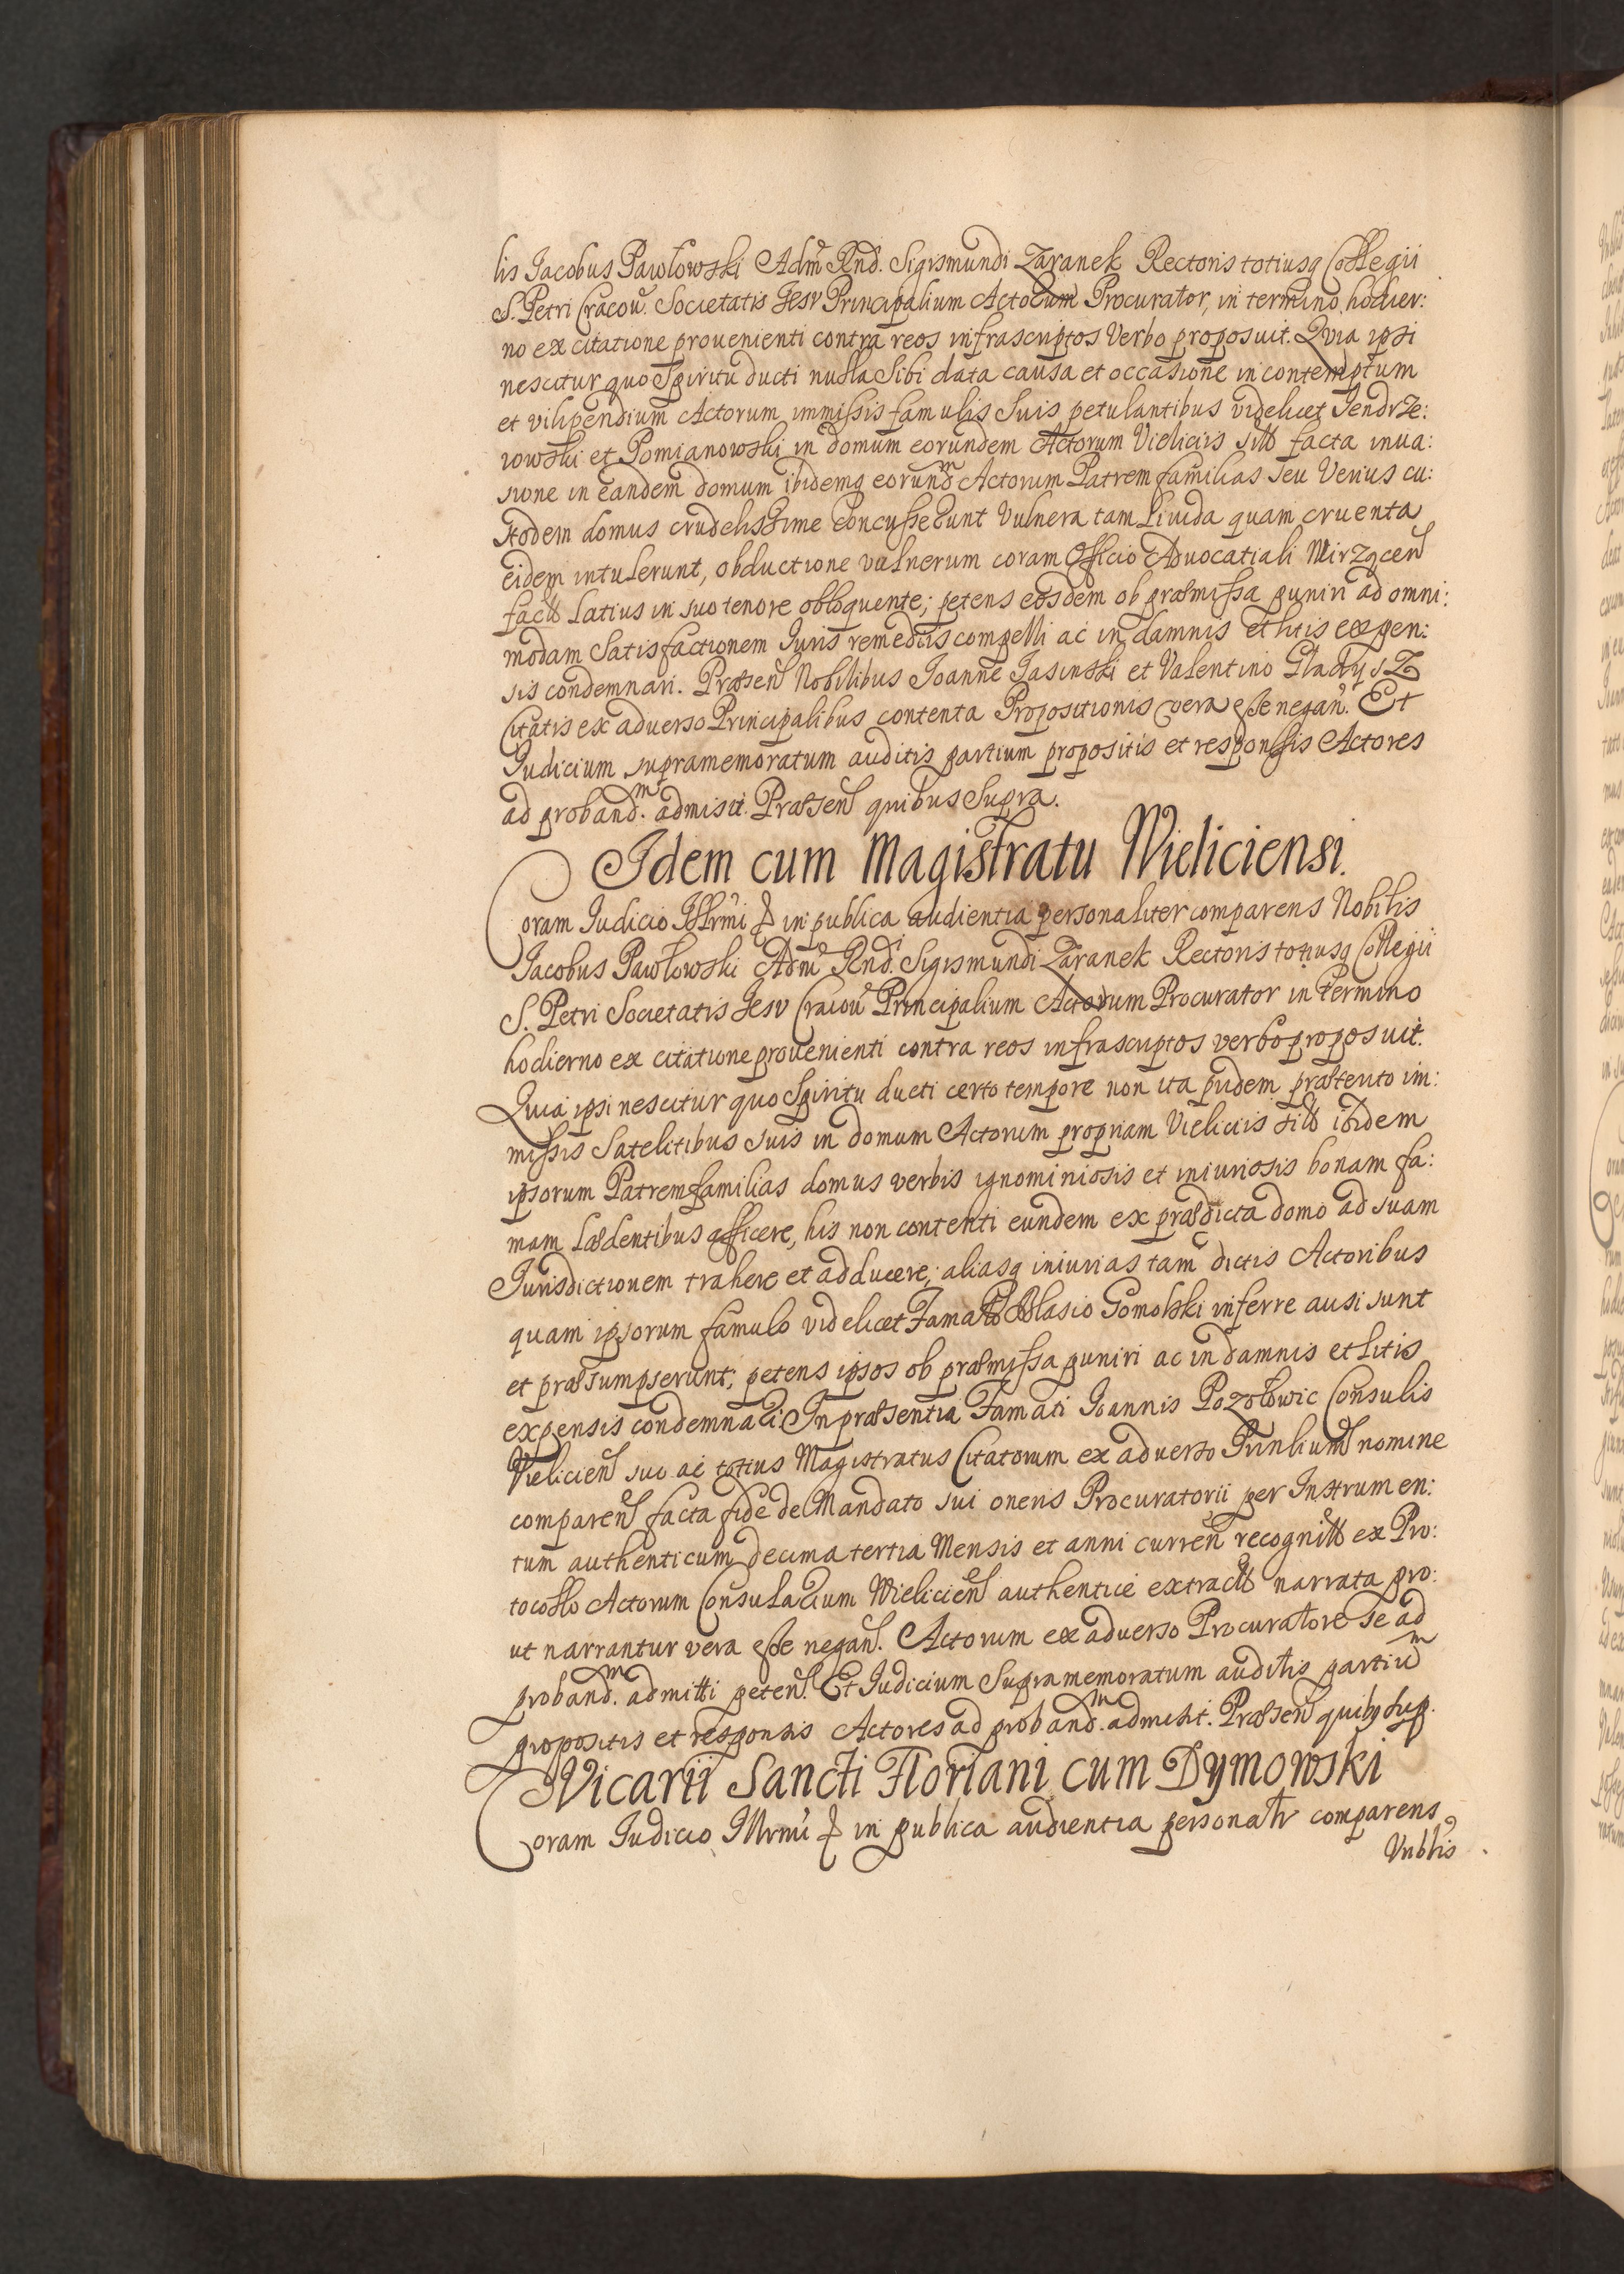 lis Jacobus Pawłowski Adm̃ Rnd. Sigismundi Zaranek Rectoris totiusq Collegii
S. Petri Cracou. Societatis Jesv Principalium Actorum Procurator, in termino hodier:
no ex citatione prouenienti contra reos infrascriptos Verbo proposuit. Qvia ipsi
nescitur quo Spiritu ducti nulla Sibi data causa et occasione in contemptum
et vilipendium Actorum immissis famulis Suis petulantibus videlicet Jendrze:
iowski et Pomianowski in domum eorundem Actorum Vieliciis sitt facta inua:
sione in eandem domum ibidemq eorundm Actorum Patrem familias seu Verius cu:
stodem domus crudelissime concusserunt Vulnera tam Liuida quam cruenta
eidem intulerunt, obductione vulnerum coram Officio Aduocatiali Mirzqcen
fact Latius in suo tenore obloquente; petens eosdem ob præmissa puniri ad omni:
modam Satisfactionem Juris remediis compelli ac in damnis et litis expen:
sis condemnari. Præsen Nobilibus Joanne Jasinski et Valentino Gladysz
Citatis ex aduerso Principalibus contenta Propositionis vera esse negan. Et
Judicium supramemoratum auditis partium propositis et responsis Actores
ad proband.m admisit. Præsen quibus Supra.
Idem cum Magistratu Wieliciensi.
Coram Judicio Illrmi & in publica audientia personaliter comparens Nobilis
Jacobus Pawłowski Adm̃ Rndi Sigismundi Zaranek Rectoris totiusq Collegii
S. Petri Societatis Jesv Cracou Principalium Actorum Procurator in termino
hodierno ex citatione prouenienti contra reos infrascriptos verbo proposuit.
Quia ipsi nescitur quo Spiritu ducti certo tempore non ita pridem præterito im:
missis Satelitibus suis in domum Actorum propriam Vieliciis sitt ibidem
ipsorum Patremfamilias domus verbis ignominiosis et iniuriosis bonam fa:
mam Lædentibus afficere, his non contenti eundem ex prædicta domo ad suam
Jurisdictionem trahere et adducere; aliasq iniurias tam dictis Actoribus
quam ipsorum famulo videlicet Famato Blasio Gomolski inferre ausi sunt
et præsumpserunt; petens ipsos ob præmissa puniri ac in damnis et litis
expensis condemnari. In præsentia Famati Joannis Pozołowic Consulis
Vielicien suo ac totius Magistratus Citatorum ex aduerso Prinlium nomine
comparen facta fide de Mandato sui oneris Procuratorii per Instrumen:
tum authenticum decima tertia Mensis et anni curren recognitt ex Pro:
tocollo Actorum Consularium Wielicien authentice extract narrata pro:
ut narrantur vera esse negan. Actorum ex aduerso Procuratore se ad
proband.m admitti peten. Et Judicium Supramemoratum auditis partium
propositis et responsis Actores ad proband.m admisit. Præsen quibq sup.
Vicarii Sancti Floriani cum Dymowski
Coram Judicio Illrmi & in publica audientia personalr comparens